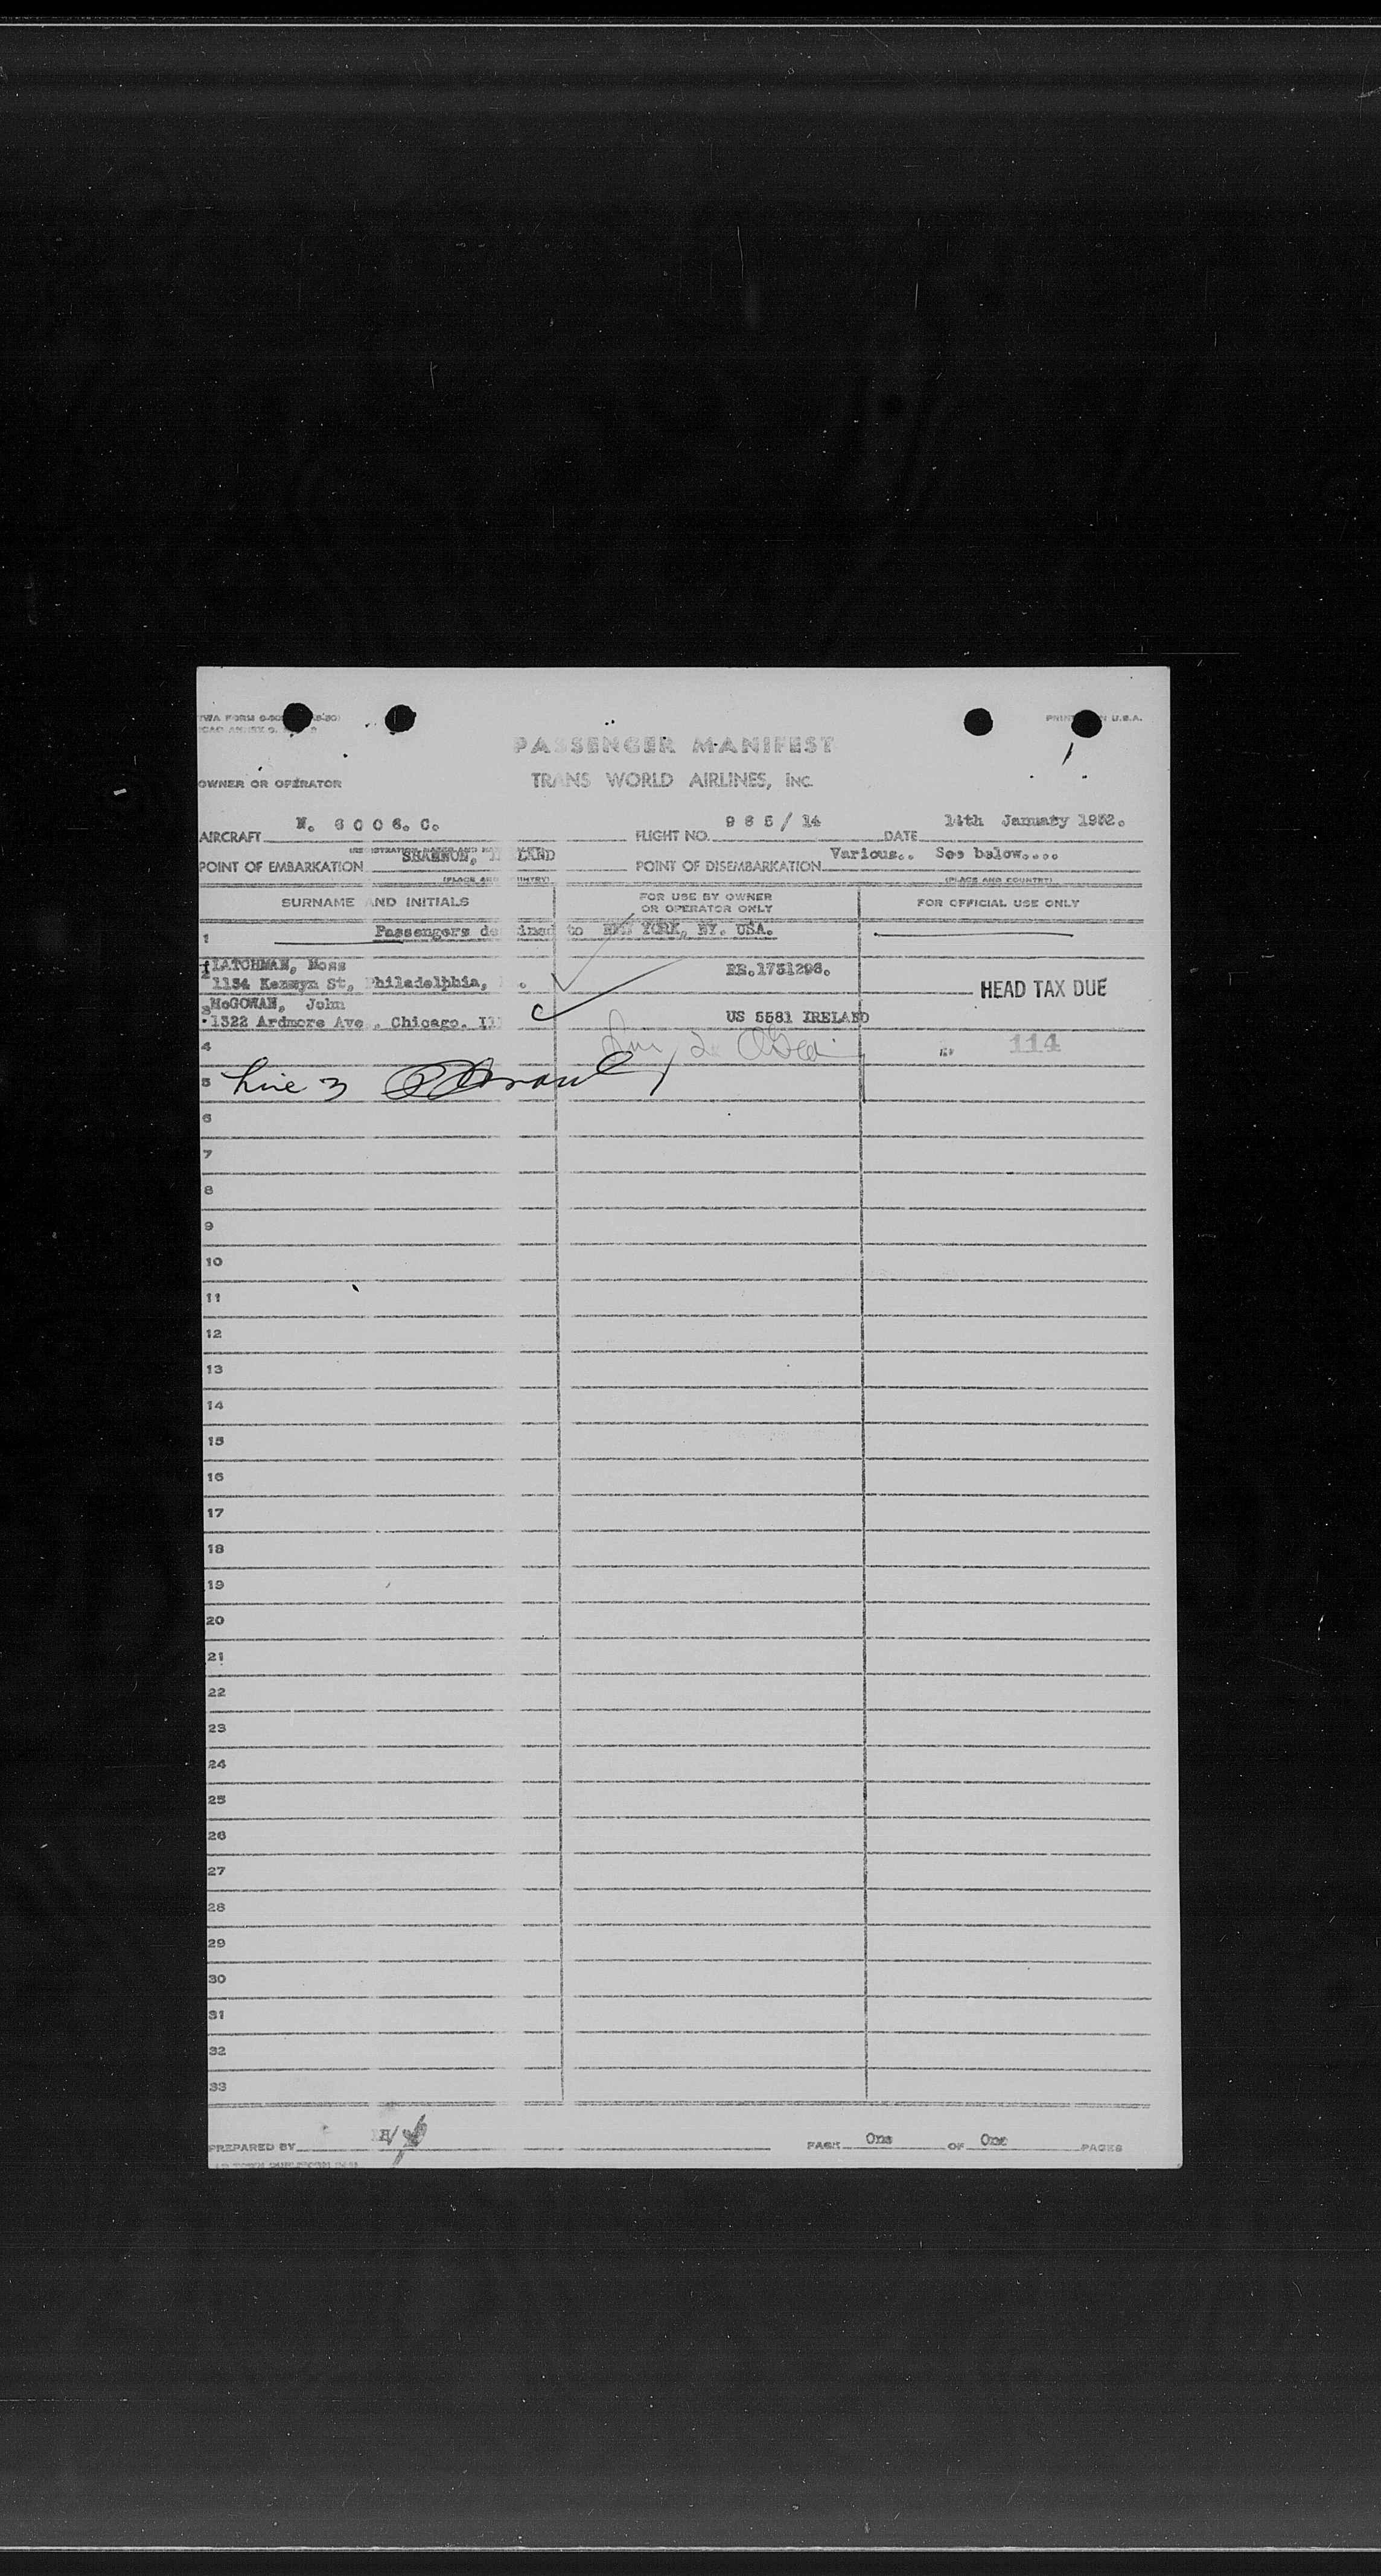 PASSENGER MANIFEST
OWNER OR OPERATOR TRANS WORLD AIRLINES, INC.
AIRCRAFT N. 6006. C. FLIGHT NO. 965/14 DATE 14th January 1952.
POINT OF EMBARKATION SHANNON, IRELAND POINT OF DISEMBARKATION Various.. See below....
(PLACE AND COUNTRY) (PLACE AND COUNTRY)
SURNAME AND INITIALS FOR USE BY OWNER OR OPERATOR ONLY FOR OFFICIAL USE ONLY
1 Passengers destined to NEW YORK, NY. USA.
2 LATCHMAN, Moss
1134 Kenwyn St, Philadelphia, RR.1751296.
HEAD TAX DUE
3 McGOWAN, John
1322 Ardmore Ave., Chicago. Ill US 5581 IRELAND
4 114
5 Line 3
6
7
8
9
10
11
12
13
14
15
16
17
18
19
20
21
22
23
24
25
26
27
28
29
30
31
32
33
PREPARED BY PAGE One OF One PAGES